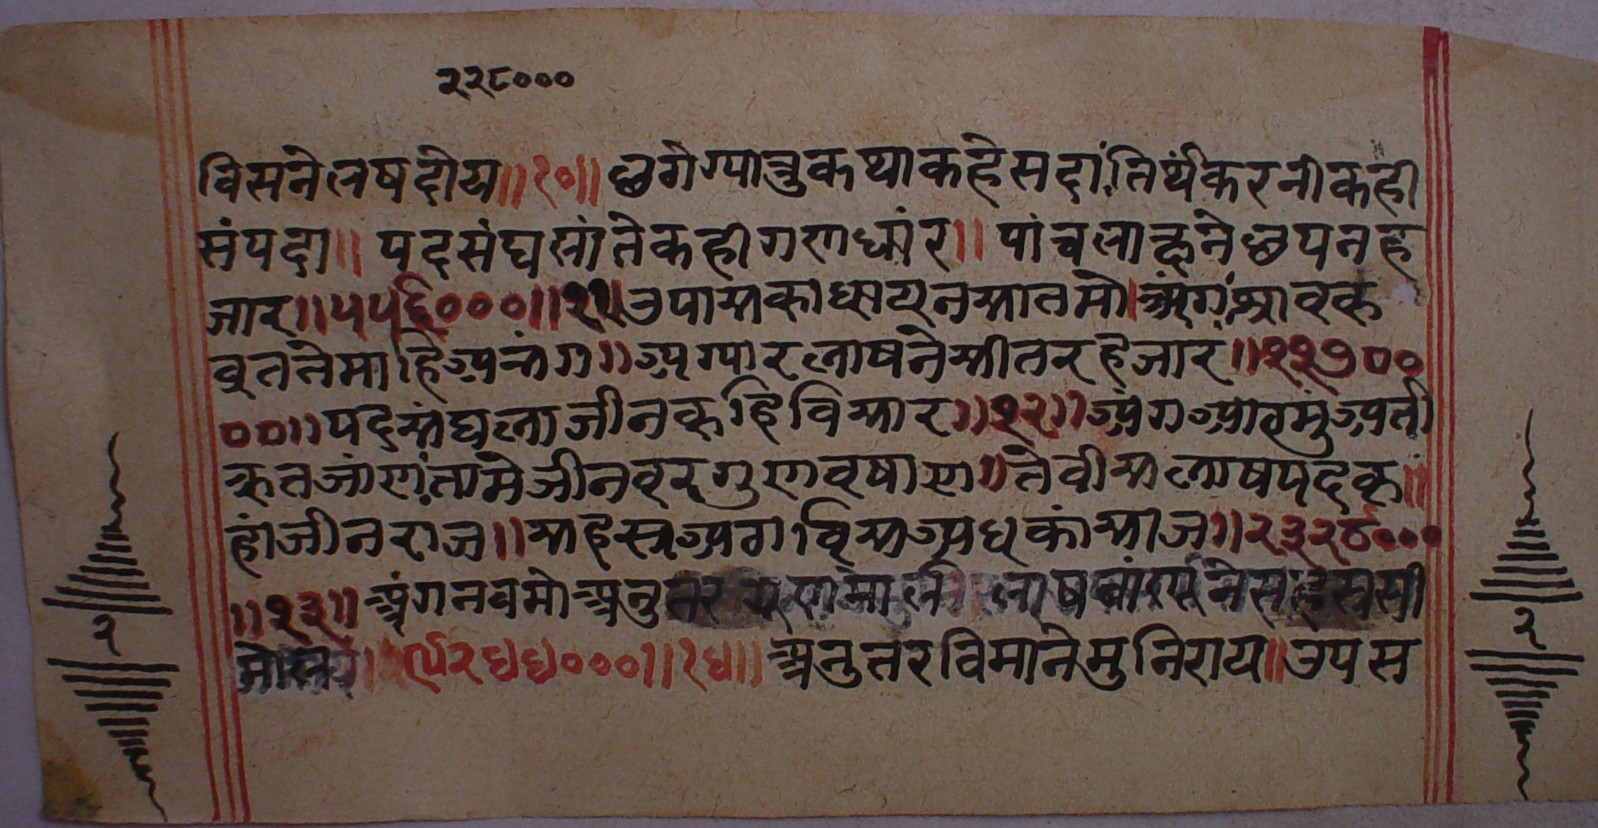 २२८०००
विसनेलषदोय॥१०॥छगेग्यात्रुकथाकहेसदां,तिर्थंकरनीकही
संपदा॥पदसंघसांतेकहीगणधांर॥पांचलाक्षनेछपनह
जार॥५५६०००॥११॥उपासकाध्ययनसातमो।अंग,श्रावक
वृततेमाहिअभंग॥अग्यारलाषनेसीतरहैजार॥११७००
००॥पदसंघलाजीनकहिविसार॥१२॥अंगआठमुंअर्ती
कृतजांण,तामेजीनवरगुणवषाण॥तेवीसलाषपदक॥
हांजीनराज॥सहस्रअगविसअधकांसीज॥२३२८०००
॥१३॥अंगनवमोअनुतर लाष नेसहस्रसी
९२४४०००॥१४॥अनुत्तरविमानेमुनिराय॥उपस
२
२